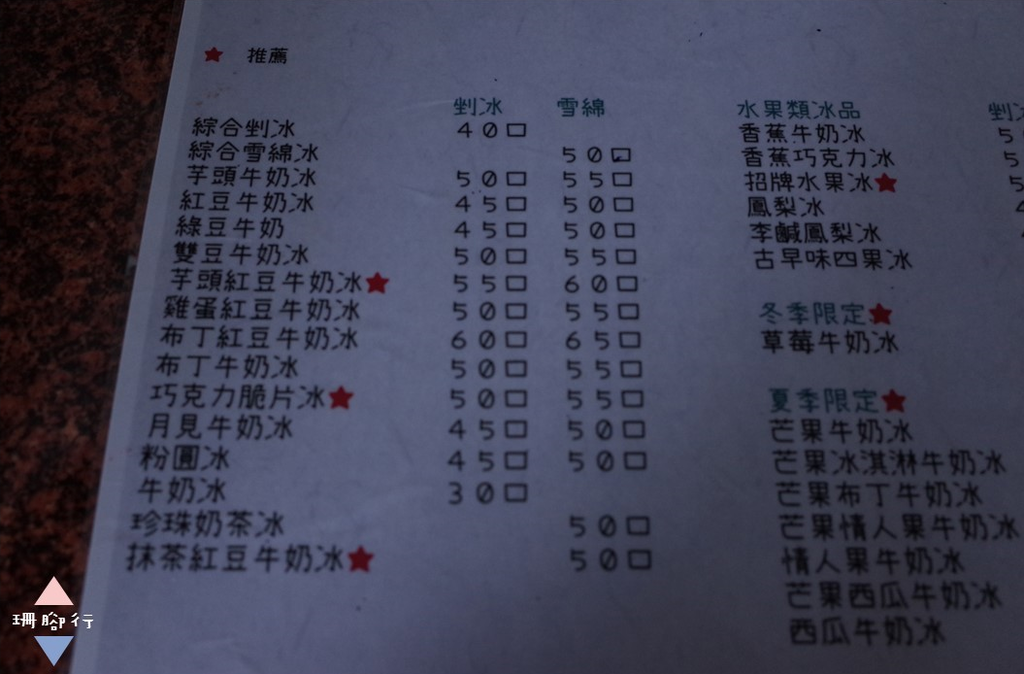 ★ 推薦
剉冰 雪綿
綜合剉冰 40□
綜合雪綿冰 50□
芋頭牛奶冰 50□ 55□
紅豆牛奶冰 45□ 50□
綠豆牛奶 45□ 50□
雙豆牛奶冰 50□ 55□
芋頭紅豆牛奶冰★ 55□ 60□
雞蛋紅豆牛奶冰 50□ 55□
布丁紅豆牛奶冰 60□ 65□
布丁牛奶冰 50□ 55□
巧克力脆片冰★ 50□ 55□
月見牛奶冰 45□ 50□
粉圓冰 45□ 50□
牛奶冰 30□
珍珠奶茶冰 50□
抹茶紅豆牛奶冰★ 50□
水果類冰品 剉
香蕉牛奶冰 5
香蕉巧克力冰 5
招牌水果冰★ 5
鳳梨冰
李鹹鳳梨冰
古早味四果冰
冬季限定★
草莓牛奶冰
夏季限定★
芒果牛奶冰
芒果冰淇淋牛奶冰
芒果布丁牛奶冰
芒果情人果牛奶冰
情人果牛奶冰
芒果西瓜牛奶冰
西瓜牛奶冰
珊腳行